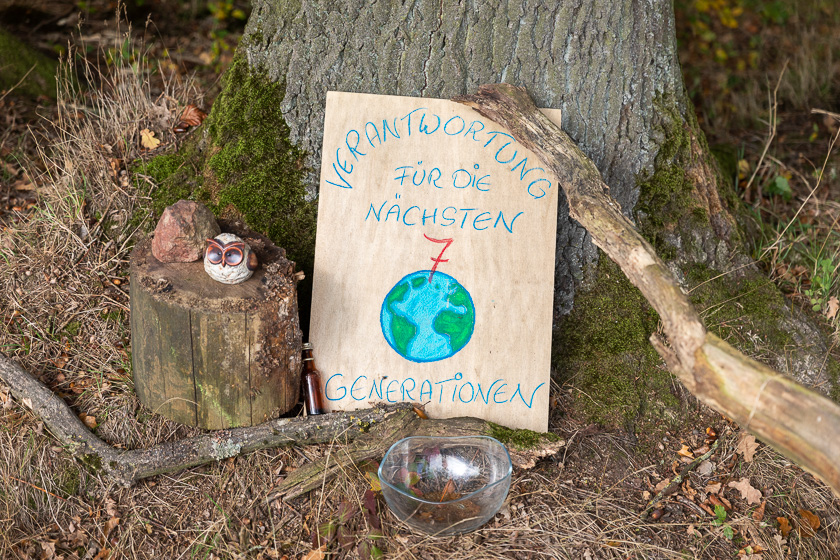 VERANTWORTUNG
FÜR DIE
NÄCHSTEN
7
GENERATIONEN